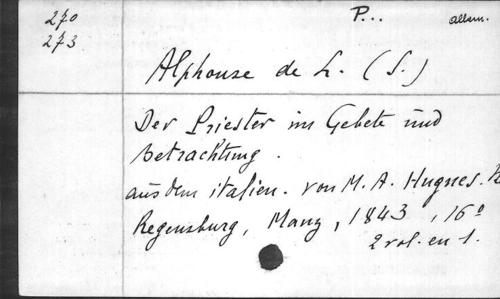 270 P... allem.
273
Alphonse de L. (S.)
Der Priester im Gebete und
Betrachtung.
aus dem italien. von M. A. Hugues.
Regensburg, Manz, 1843, 16°
2 vol. en 1.